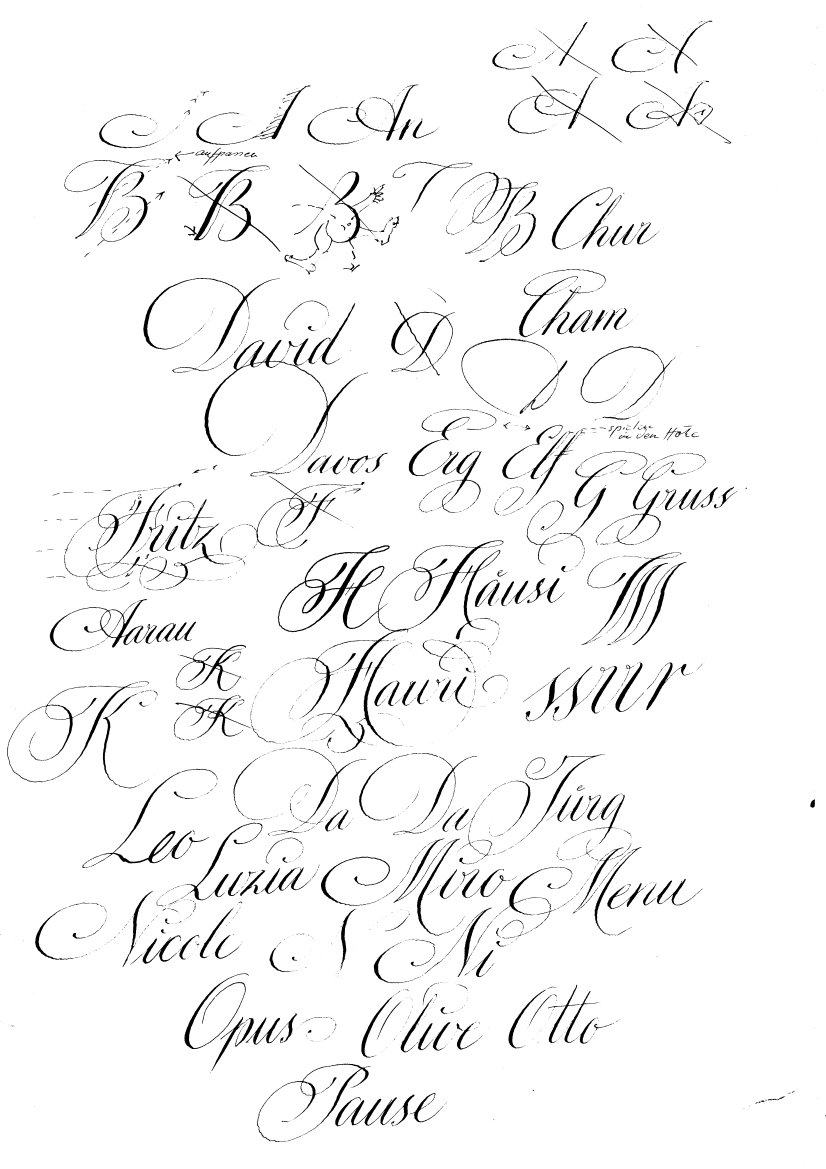 A A
A A
A An
aufpassen
B B B B Chur
Cham
David D
D D
Davos Erg Elf
spielen in den Höhe
G Gruss
Fritz F
H Häusi
Aarau
K
K K Hauri ssuur
Da Da Jürg
Leo
Luzia Miro Menu
Nicole N Ni
Opus Olive Otto
Pause